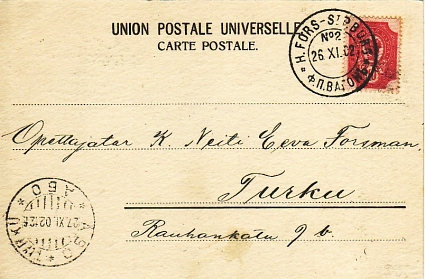 UNION POSTALE UNIVERSELLE
CARTE POSTALE.
H.FORS-ST.PBURG
No 2
26.XI.02
Ф.П.ВАГОНЪ
Opettajatar K. Neiti Eeva Forsman,
Turku
Rauhankatu 9 b.
ÅBO
TURKU
27.XI.02
АБО